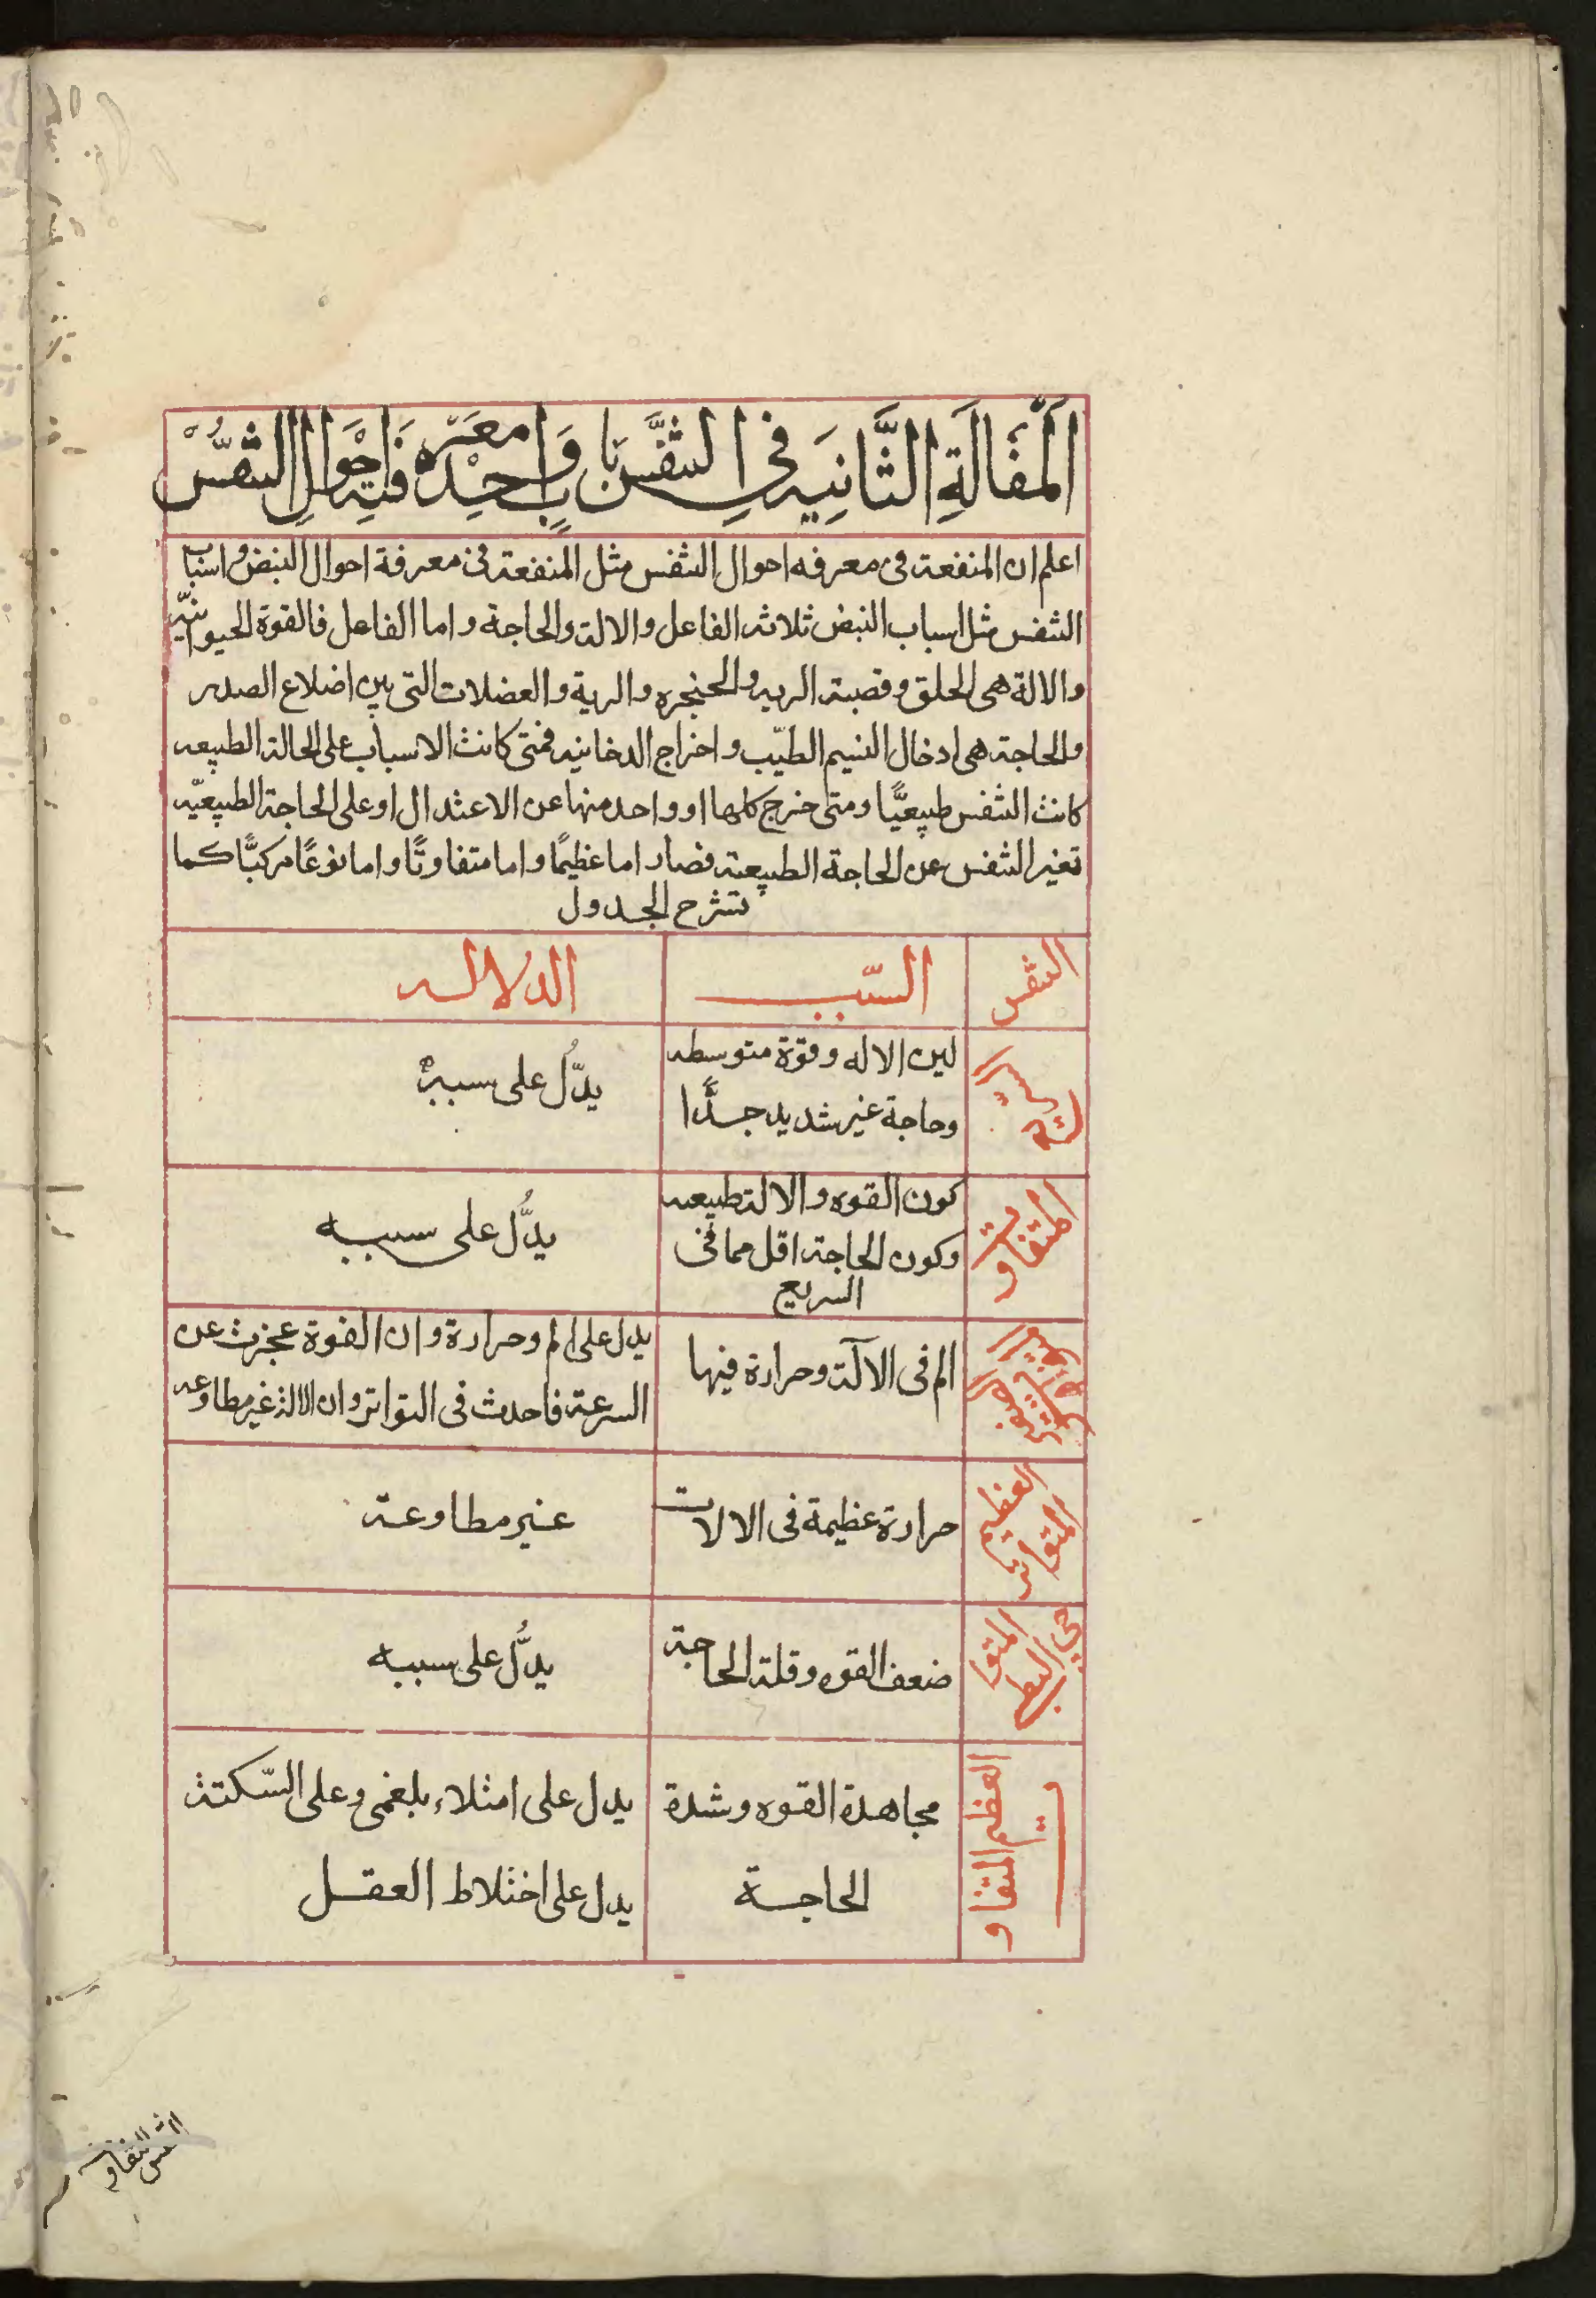 اَلْمَقَالَةِ الثَّانِيَه فِى التنفَّس بَابٍ وَاحِدْ فيه مَعَرفَه اَحْوَالِ التنفُّسْ
اعلم ان المنفعة فى معرفه احوال التنفس مثل المنفعة فى معرفة احوال النبض واسباب
التنفس مثل اسباب النبض ثلاثه الفاعل والالة والحاجة واما الفاعل فالقوة الحيوانيّه
والالة هى الحلق وقصبة الريه والحنجره والرية والعضلات التى بين اضلاع الصدر
والحاجة هى ادخال النسيم الطيّب واخراج الدخانيه فمتى كانت الاسباب على الحالة الطبيعه
كانت التنفس طبيعيًّا ومتى خرج كلها او واحد منها عن الاعتدال او على الحاجة الطبيعيّه
تغير التنفس عن الحاجة الطبيعية فصار اما عظيمًا واما متفاوتًا واما نوعًا مركبًّا كما
تشرح الجدول
التنفس السّبب الدلاله
السريع
لين الاله وقوة متوسطه
وحاجة غير شديد جدًّا
يدّلُ على سببه
المتفاوت
كون القوه والالة طبيعه
وكون الحاجة اقل مما فى
السريع
يدُّل على سببه
الم فى الآلة وحرارة فيها
يدل على الم وحرارة وان القوة عجزت عن
السرعة فاحدث فى التواتر وان الالة غير مطاوعه
العظيم
المتواتر
حرارة عظيمة فى الالات
غير مطاوعة
ضعف القوه وقلة الحاجة
يدُّل على سببه
العظم المتفاوت
مجاهدة القوه وشدة
الحاجة
يدل على امتلاء بلغمى وعلى السّكتة
يدل على اختلاط العقل
التنفس المتفاوت